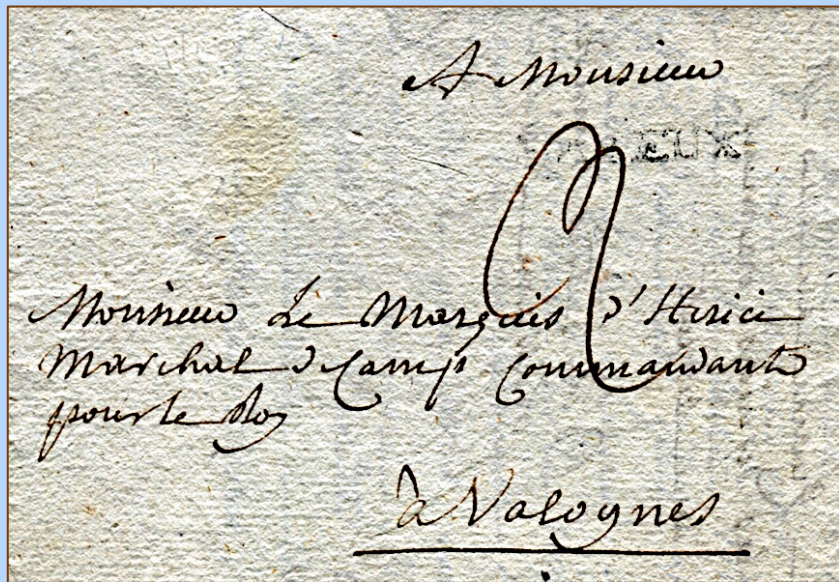 A Monsieur
Monsieur Le Marquis d'Herici
Marchal d Camp Commandant
pour le Roy
à Valognes